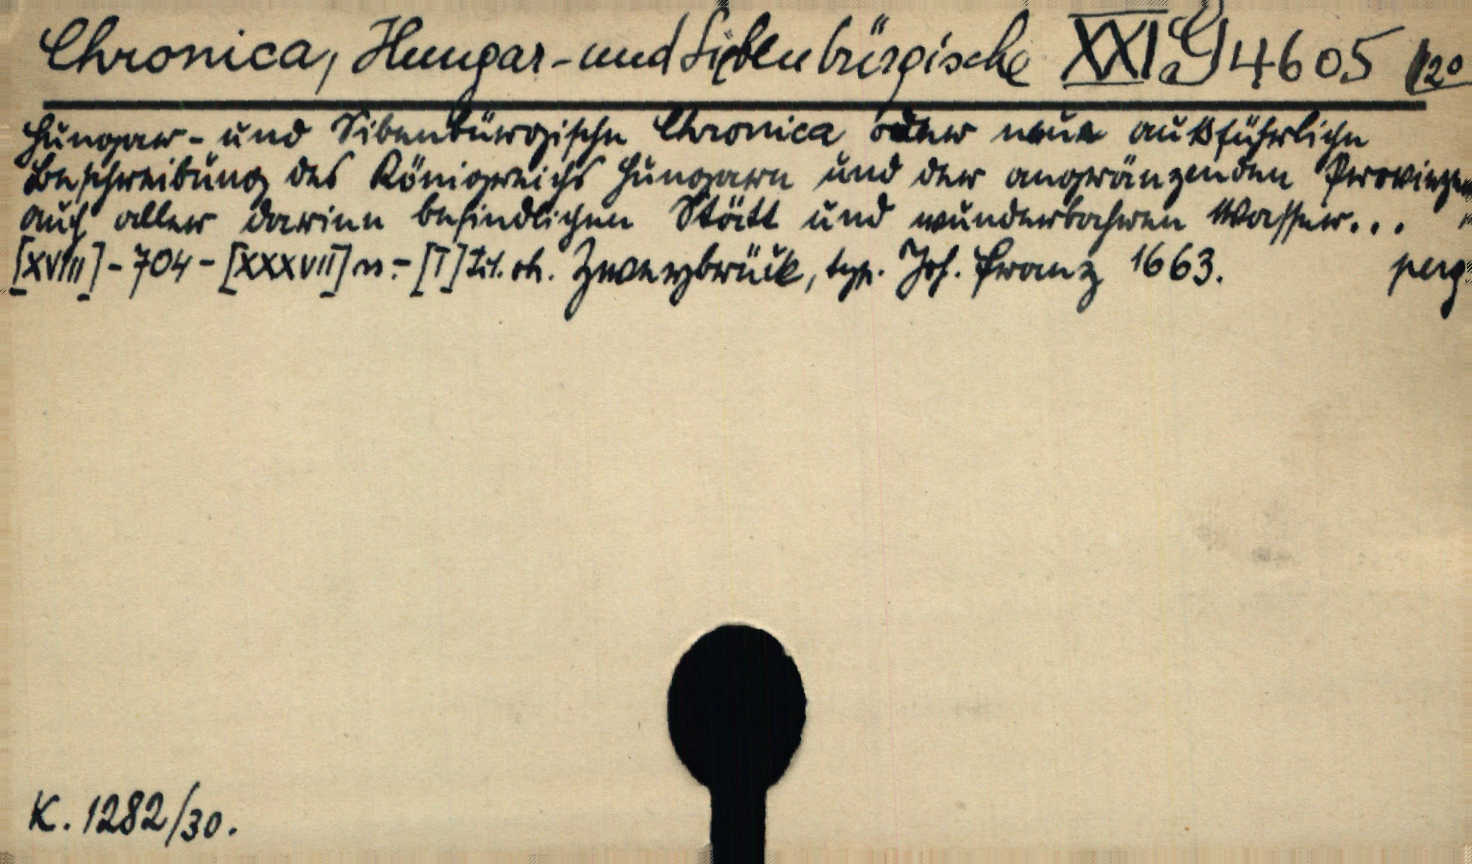 Chronica, Hungar-und Siebenbürgische XXI G 4605 12⁰
Hungar- und Sibenbürgische Chronica oder neue außführliche
Beschreibung des Königreichs Hungarn und der angränzenden Provinzen
auch aller darinn befindlichen Stätt und wunderbahren Wasser...
[XVIII]-704-[XXXVII] - [I] Zweyzbrück, typ. Joh. Franz 1663. perg.
K. 1282/30.